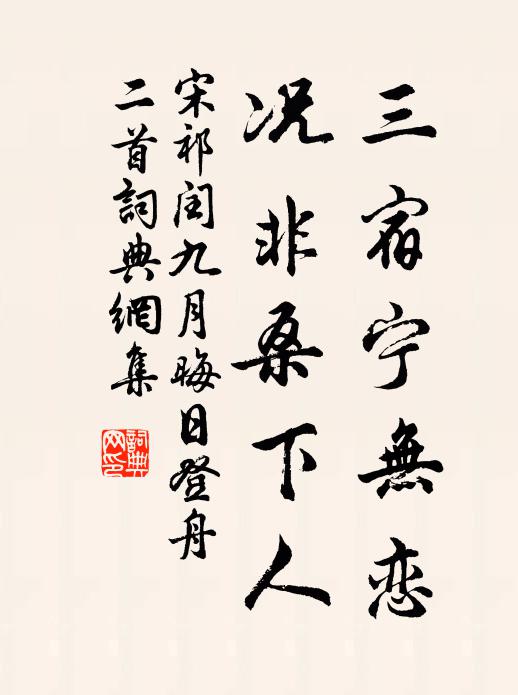 三宿宁無恋
况非桑下人
宋祁闰九月晦日登舟
二首詞典網集
詞典网印